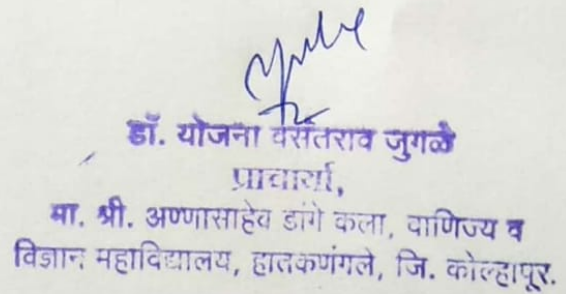 डॉ. योजना वसंतराव जुगळे
प्राचार्या,
मा. श्री. अण्णासाहेब डांगे कला, वाणिज्य व
विज्ञान महाविद्यालय, हातकणंगले, जि. कोल्हापूर.